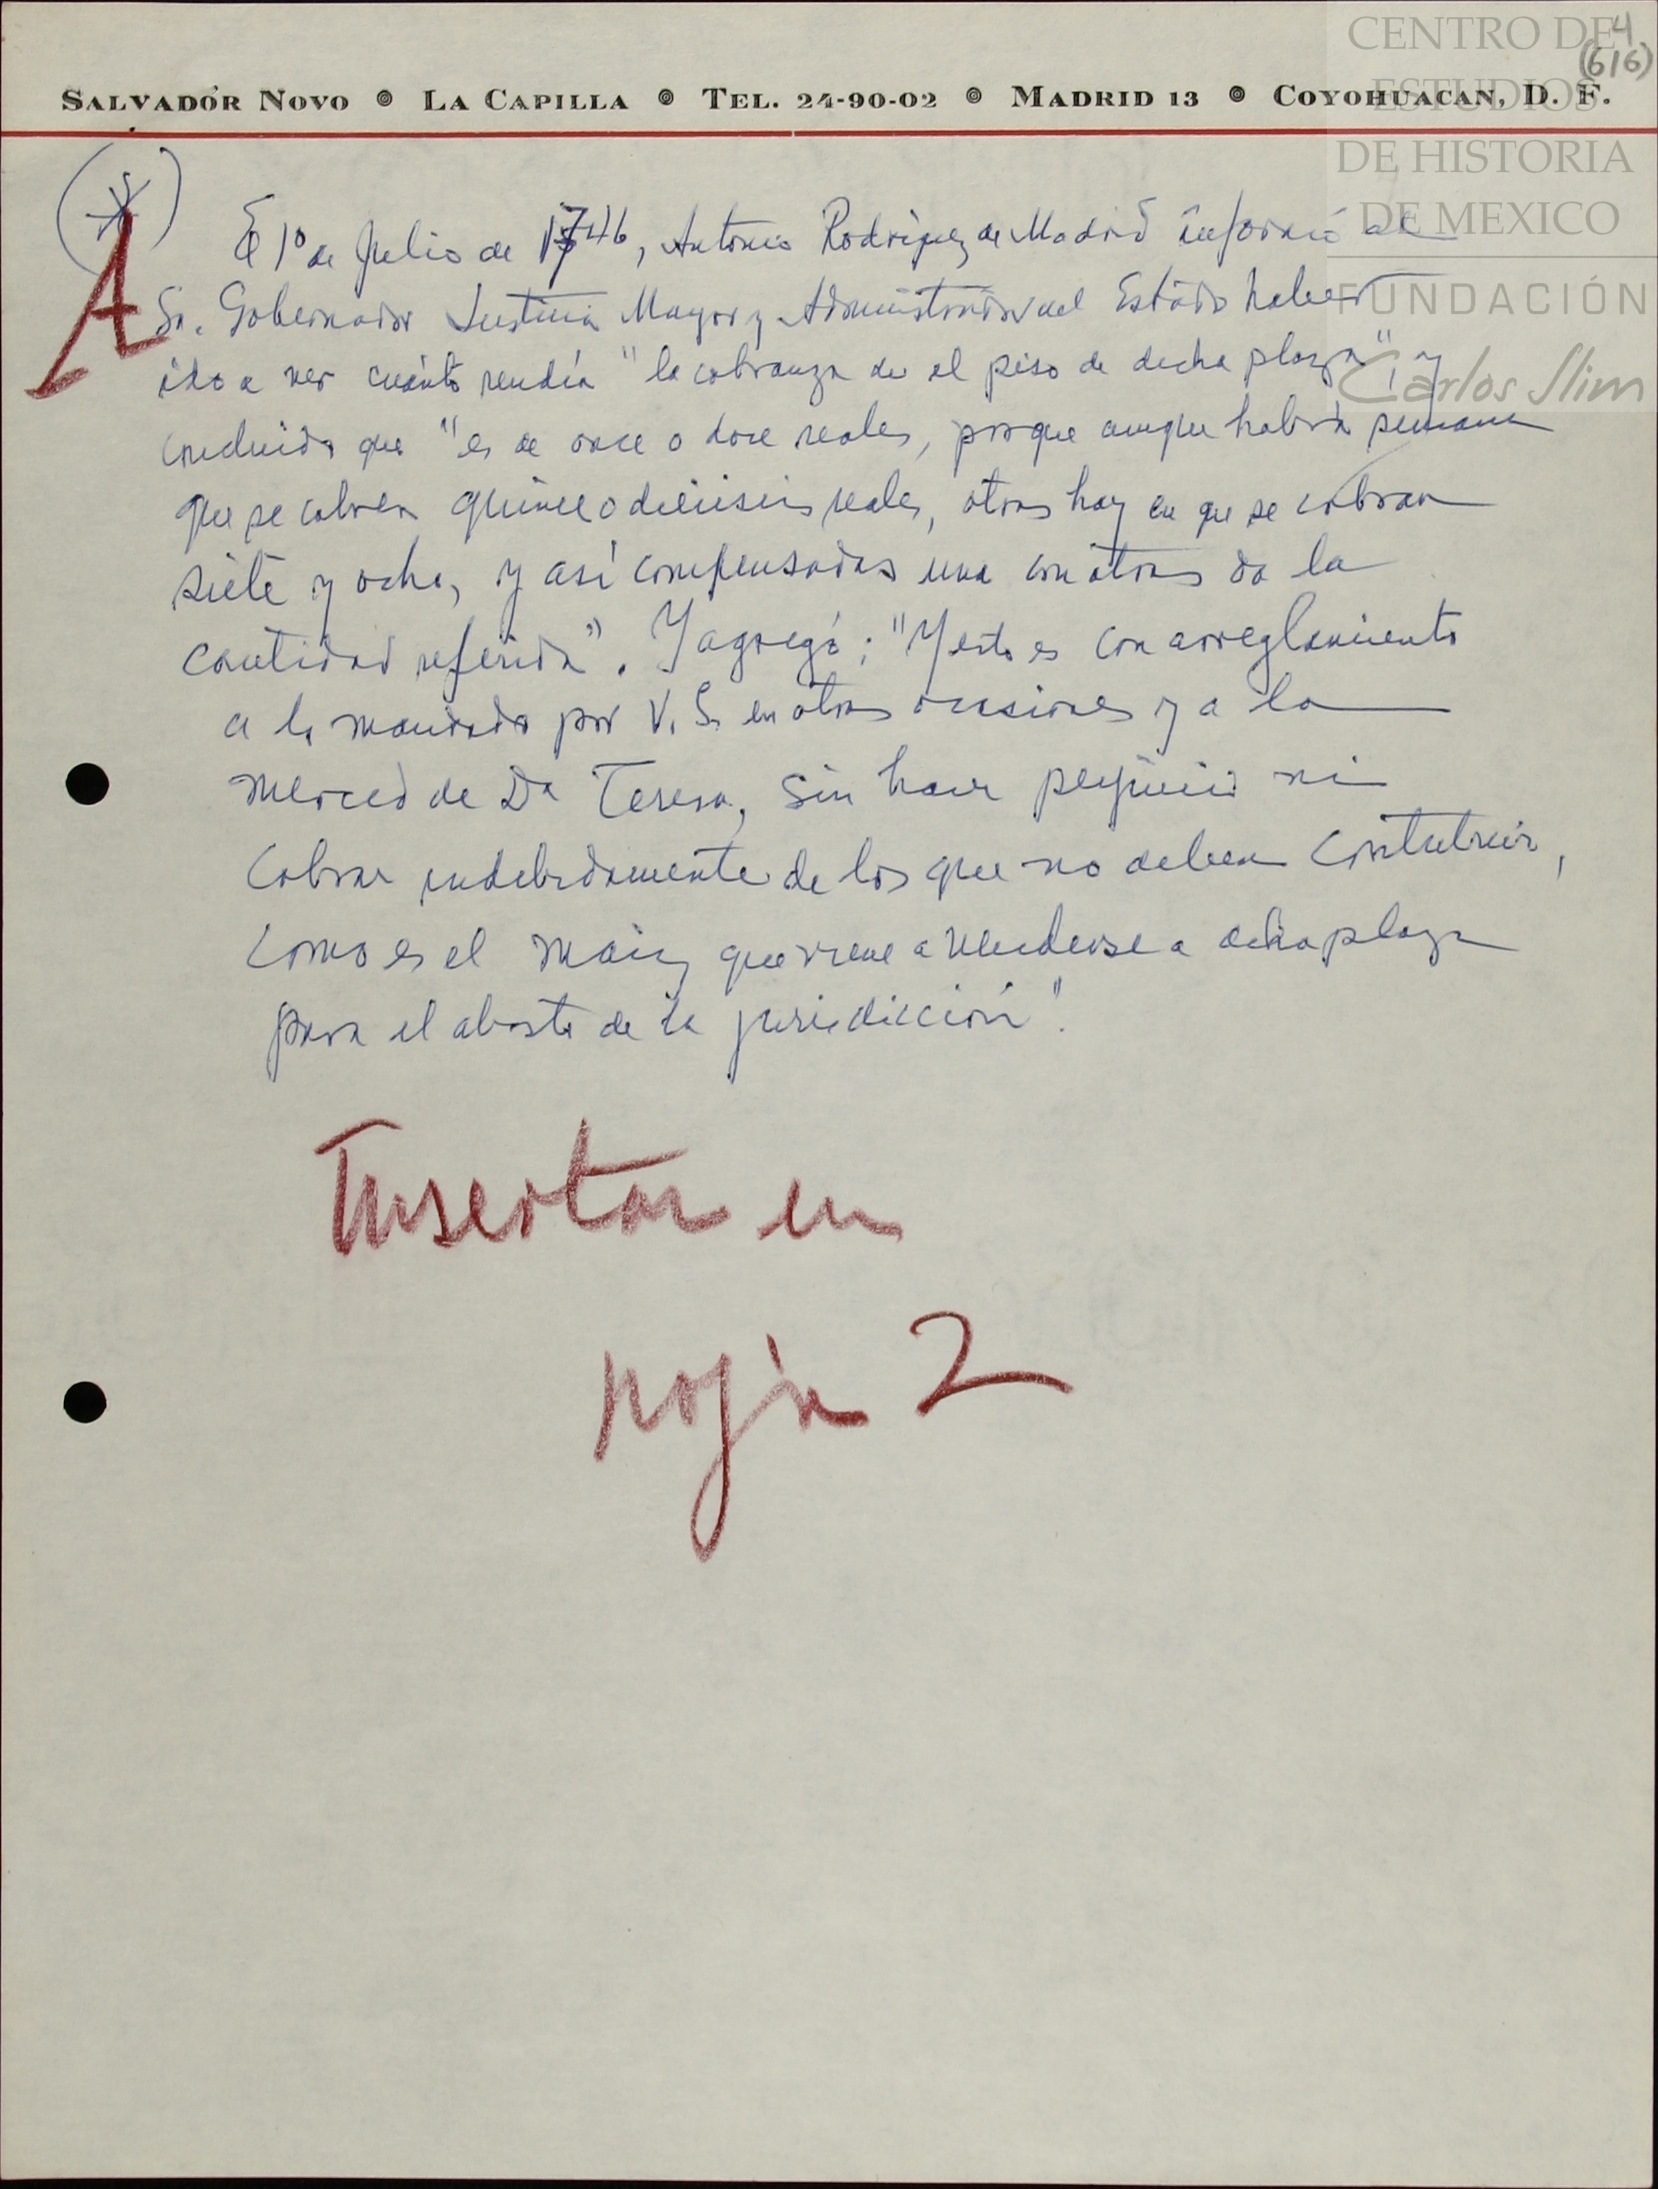 4
(616)
CENTRO DE
ESTUDIOS
DE HISTORIA
DE MEXICO
FUNDACIÓN
Carlos Slim
SALVADOR NOVO ◎ LA CAPILLA ◎ TEL. 24-90-02 ◎ MADRID 13 ◎ COYOHUACAN, D. F.
(*)
A
El 1º de Julio de 1746, Antonio Rodríguez de Madrid informó al
Sr. Gobernador Justicia Mayor y Administrador del Estado haber
ido a ver cuánto rendía "la cobranza de el piso de dicha plaza", y
concluido que "es de once o doce reales, porque aunque habrá semana
que se cobren quince o dieciseis reales, otras hay en que se cobran
siete y ocho, y así compensadas una con otras da la
cantidad referida". Y agregó: "Y esto es con arreglamiento
a lo mandado por V. S. en otras ocasiones y a la
merced de Da Teresa, sin hacer perjuicio ni
cobrar indebidamente de los que no deben contribuir,
como es el maiz que viene a venderse a dicha plaza
para el abasto de la jurisdicción".
Insertar en
hoja 2